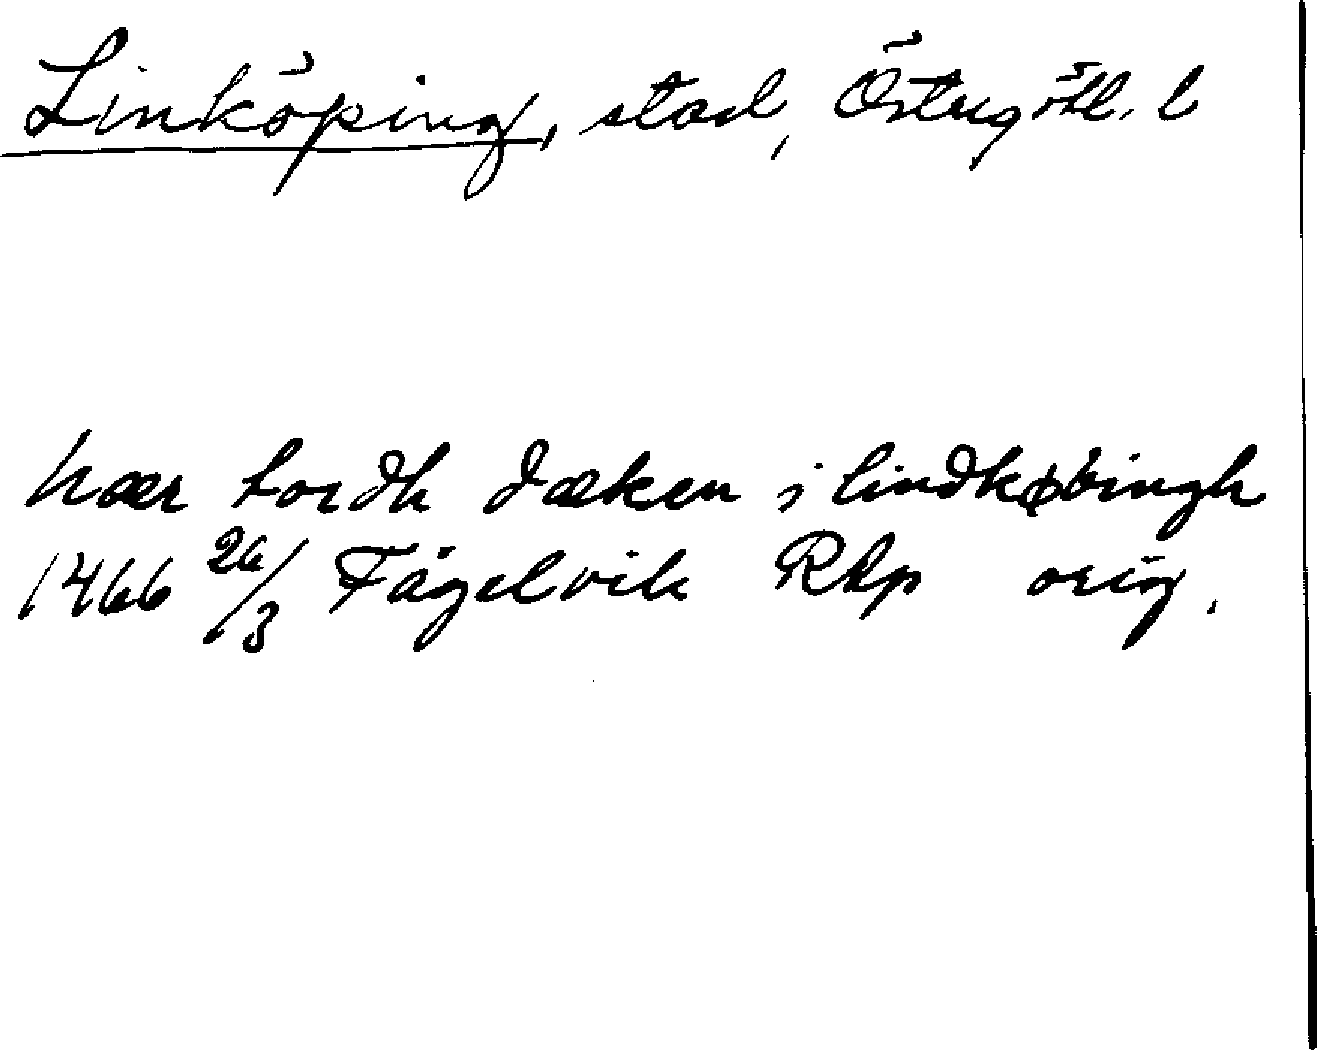 Linköping, stad, Östergötl. l
hær tordh dæken i lindkøpingh
1466 26/3 Fågelvik RAp orig.